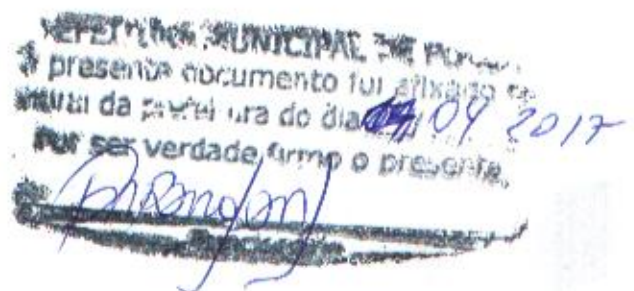 PREFEITURA MUNICIPAL DE
O presente documento foi afixado no
mural da prefeitura do dia 04 2017
Por ser verdade firmo o presente.